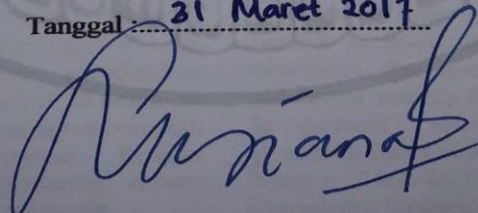 Tanggal : 31 Maret 2017